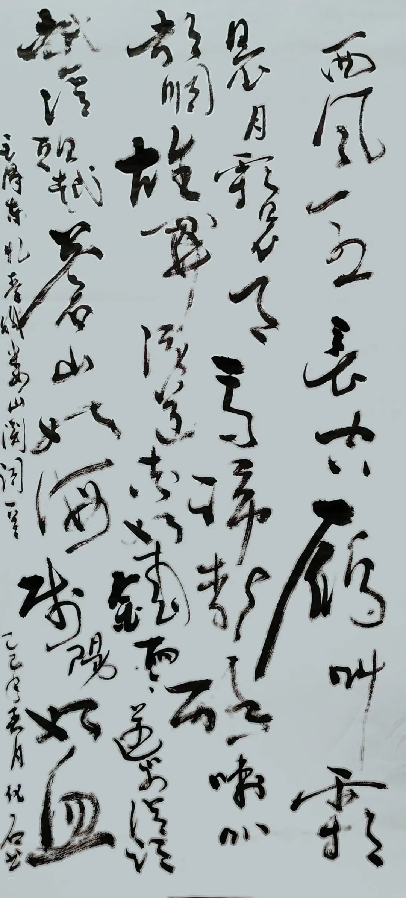 西风烈長空雁叫霜
晨月霜晨月馬蹄聲碎喇叭
聲咽雄關漫道真如鐵而今邁步從頭
越從頭越蒼山如海殘陽如血
毛澤東忆秦娥娄山関詞一首 乙巳年月石书